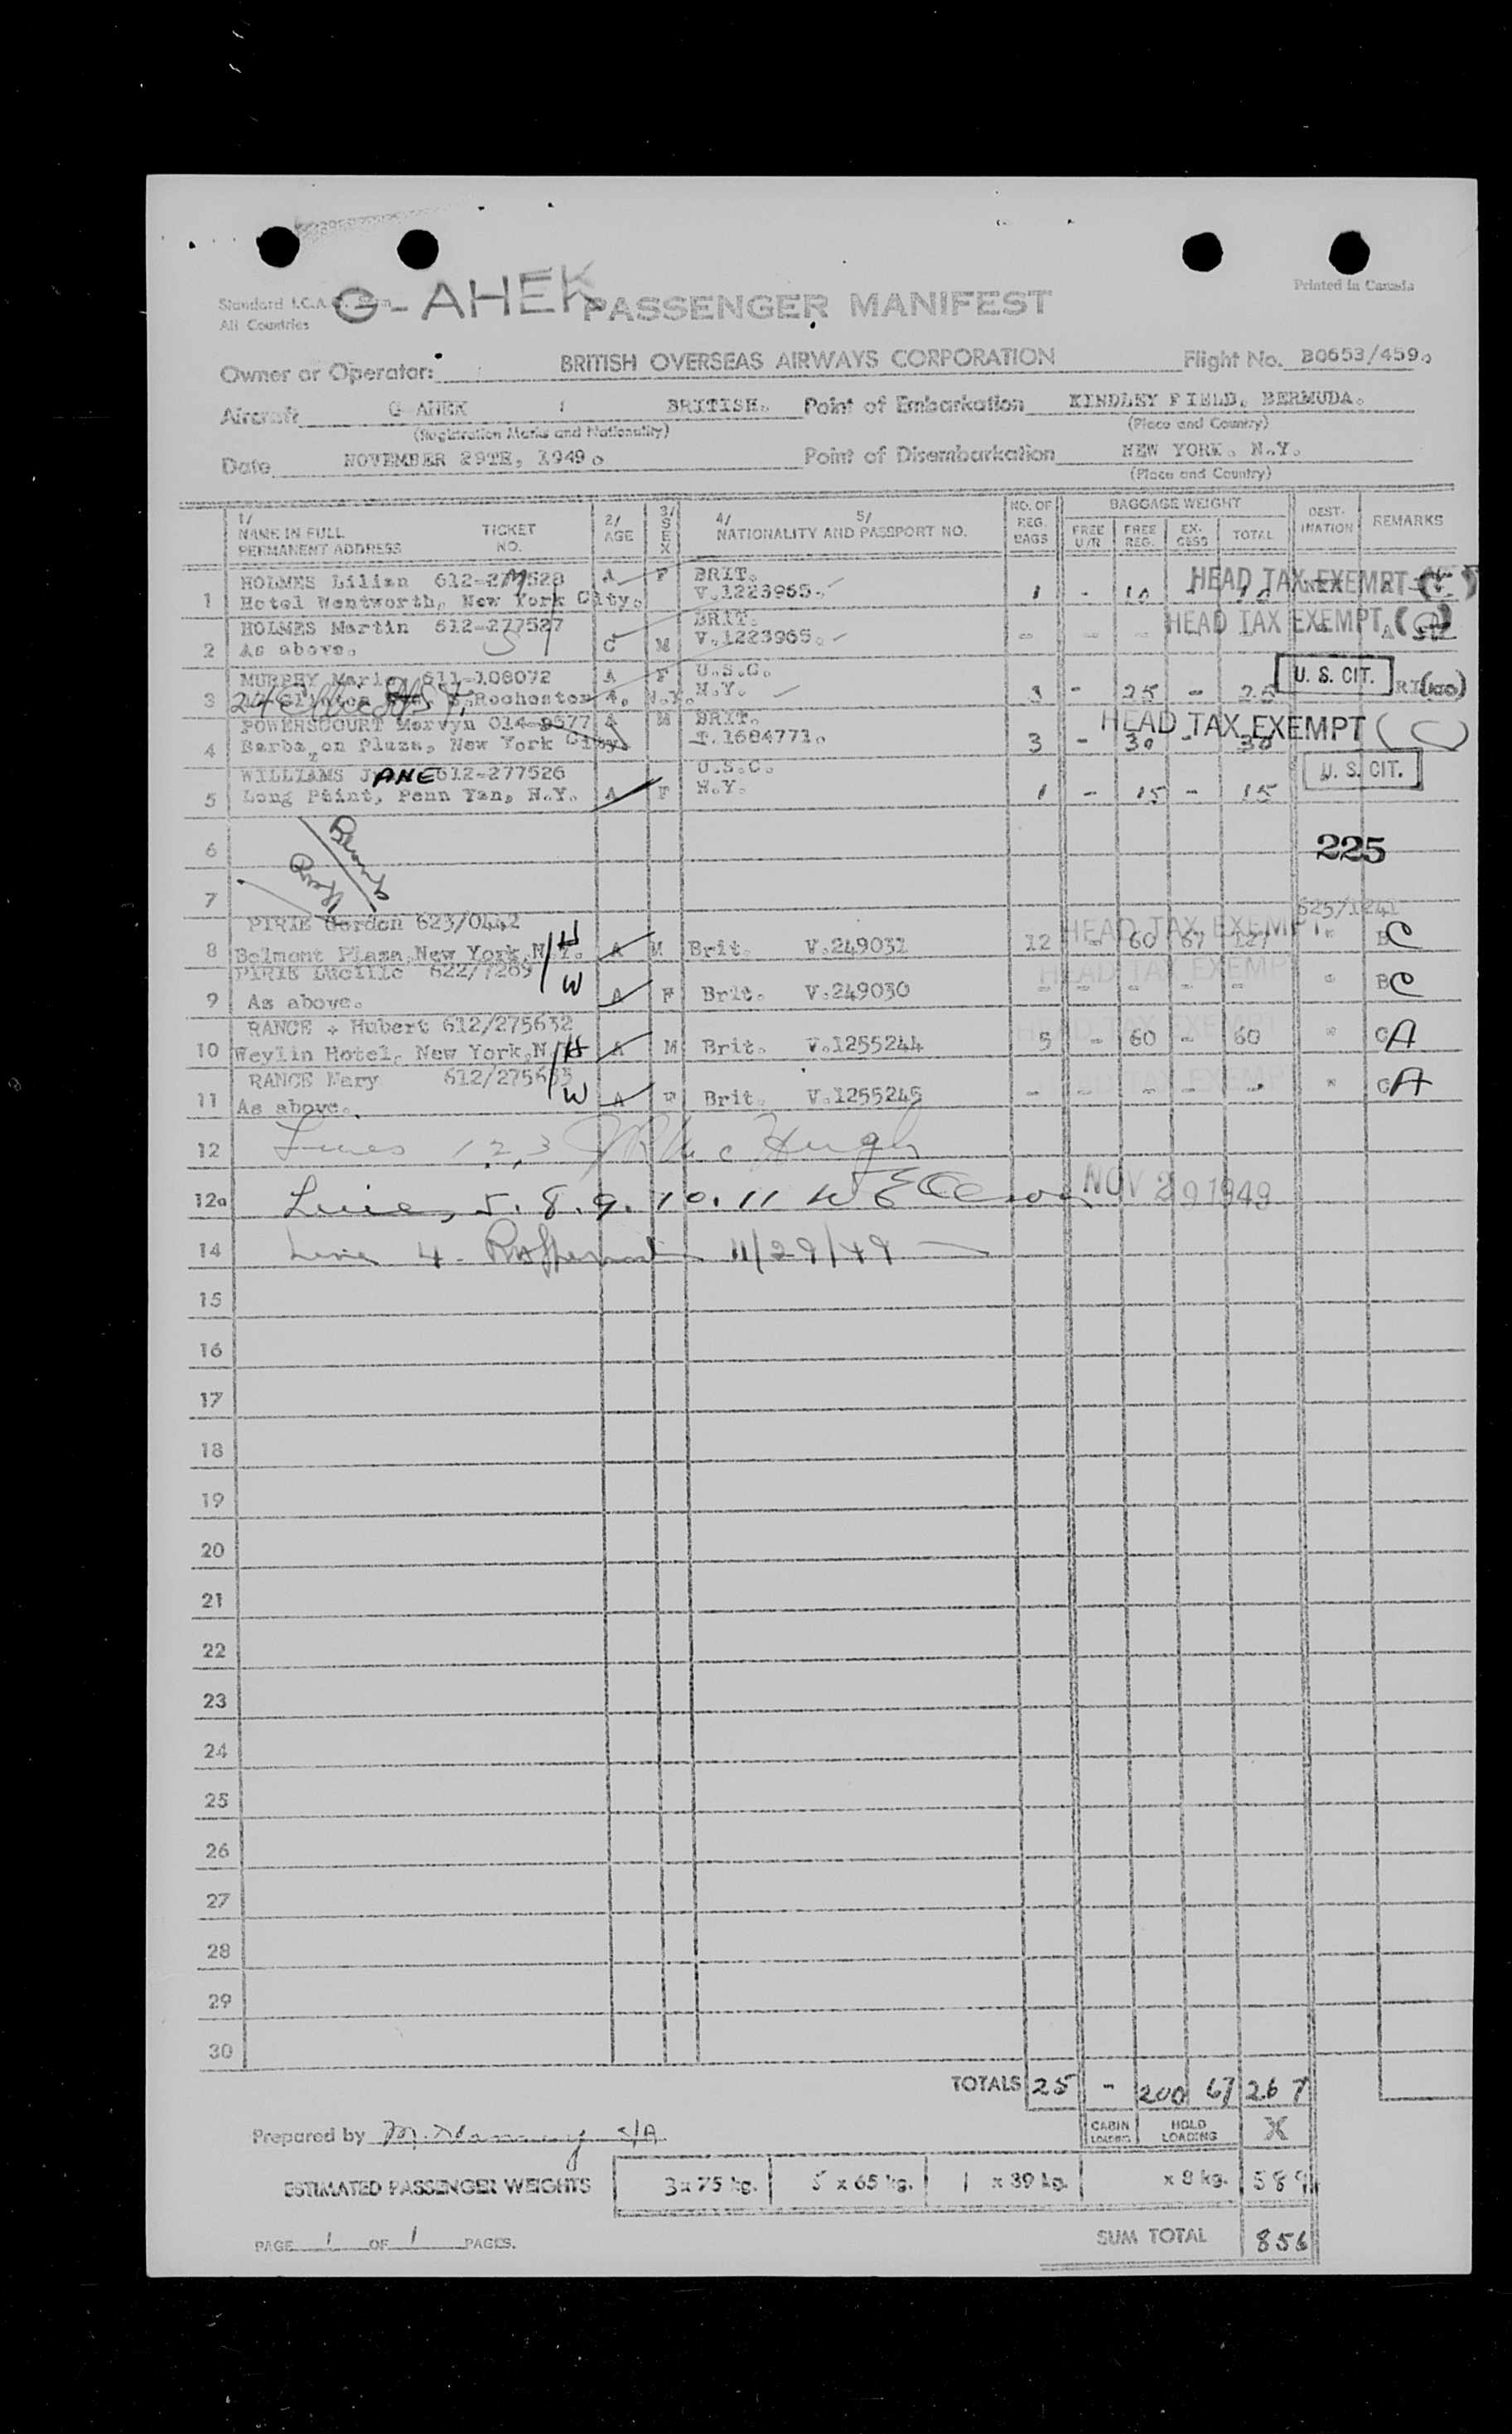 G-AHEK
Standard I.C.A.
All Countries
PASSENGER MANIFEST
Printed in Canada
Owner or Operator: BRITISH OVERSEAS AIRWAYS CORPORATION Flight No. B0653/459.
Aircraft G AHEK BRITISH. Point of Embarkation KINDLEY FIELD, BERMUDA.
(Registration Marks and Nationality) (Place and Country)
Date NOVEMBER 29TH, 1949. Point of Disembarkation NEW YORK. N.Y.
(Place and Country)
1/ NAME IN FULL PERMANENT ADDRESS TICKET NO. 2/ AGE 3/ SEX 4/ 5/ NATIONALITY AND PASSPORT NO. NO. OF REG. BAGS BAGGAGE WEIGHT FREE U/R FREE REG. EX-CESS TOTAL DEST-INATION REMARKS
HOLMES Lilian 612-277528 A F BRIT. HEAD TAX EXEMPT
1 Hotel Wentworth, New York City. V.1223965. 1 - 10 - 10
HOLMES Martin 612-277527 BRIT. HEAD TAX EXEMPT
2 As above. C M V.1223965. - - - - -
MURPHY Marie 611-108072 A F U.S.C. U. S. CIT.
3 24 Rochester 4, N.Y. N.Y. 3 - 25 - 25
POWERSCOURT Mervyn 014-9577 A M BRIT. HEAD TAX EXEMPT (C)
4 Barbazon Plaza, New York City. T.1684771. 3 - 30 - 30
WILLIAMS JANE 612-277526 U.S.C. U. S. CIT.
5 Long Point, Penn Yan, N.Y. A F N.Y. 1 - 15 - 15
6 225
7
PIRIE Gordon 623/0442 HEAD TAX EXEMPT 525/1241
8 Belmont Plaza, New York, N.Y. H A M Brit. V.249031 12 - 60 67 127 " BC
PIRIE Lucille 622/7269 HEAD TAX EXEMPT
9 As above. W A F Brit. V.249030 - - - - - " BC
RANCE + Hubert 612/275632 HEAD TAX EXEMPT
10 Weylin Hotel, New York, N. H A M Brit. V.1255244 5 - 60 - 60 " CA
RANCE Mary 612/275633 HEAD TAX EXEMPT
11 As above. W A F Brit. V.1255245 - - - - - " CA
12 Lines 1, 2, 3
12a Lines, 5. 8. 9. 10. 11 NOV 29 1949
14 Line 4 - 11/29/49
15
16
17
18
19
20
21
22
23
24
25
26
27
28
29
30
TOTALS 25 - 200 67 267
CABIN LOADING HOLD LOADING X
Prepared by
ESTIMATED PASSENGER WEIGHTS 3 x 75 kg. 5 x 65 kg. 1 x 39 kg. x 8 kg. 589
PAGE 1 OF 1 PAGES. SUM TOTAL 856